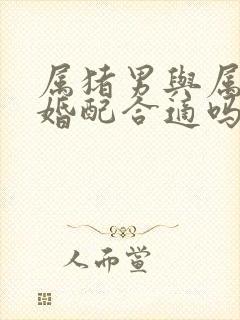 属猪男與属
婚配合適吗
人而萱